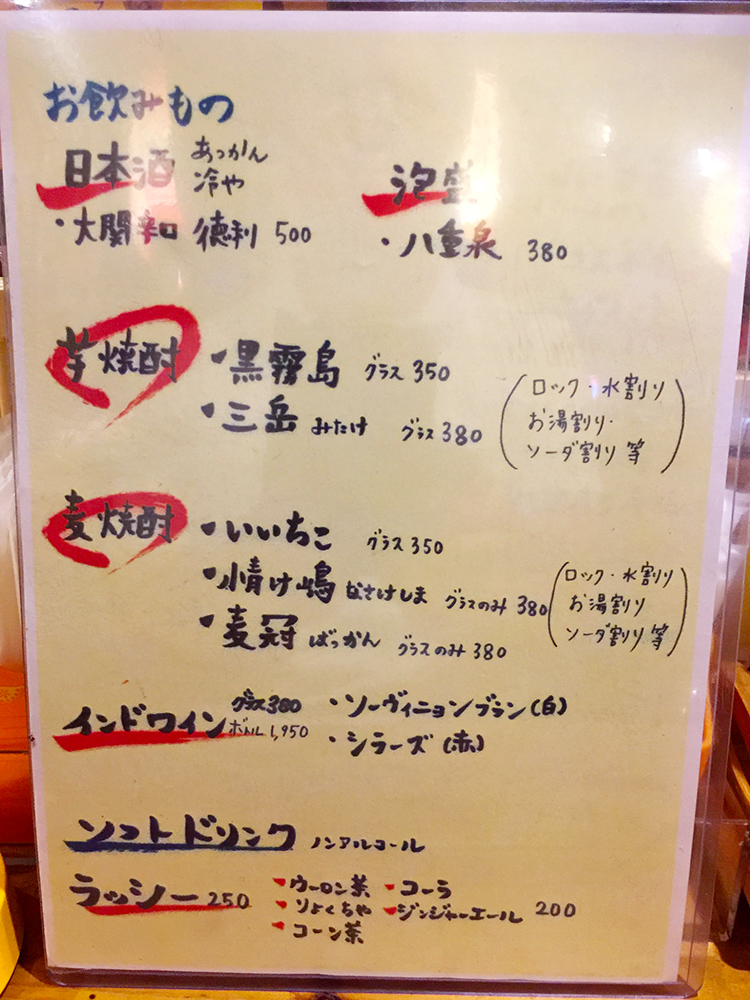 お飲みもの
日本酒 あっかん
冷や
・大関辛口 徳利 500
泡盛
・八重泉 380
芋焼酎 ・黒霧島 グラス 350
・三岳 みたけ グラス 380
(ロック・水割り
お湯割り・
ソーダ割り 等)
麦焼酎 ・いいちこ グラス 350
・情け嶋 なさけしま グラスのみ 380
・麦冠 ばっかん グラスのみ 380
(ロック・水割り
お湯割り
ソーダ割り 等)
インドワイン グラス 380
ボトル 1,950
・ソーヴィニョンブラン(白)
・シラーズ(赤)
ソフトドリンク ノンアルコール
ラッシー 250
ウーロン茶 コーラ
りょくちゃ ジンジャーエール 200
コーン茶